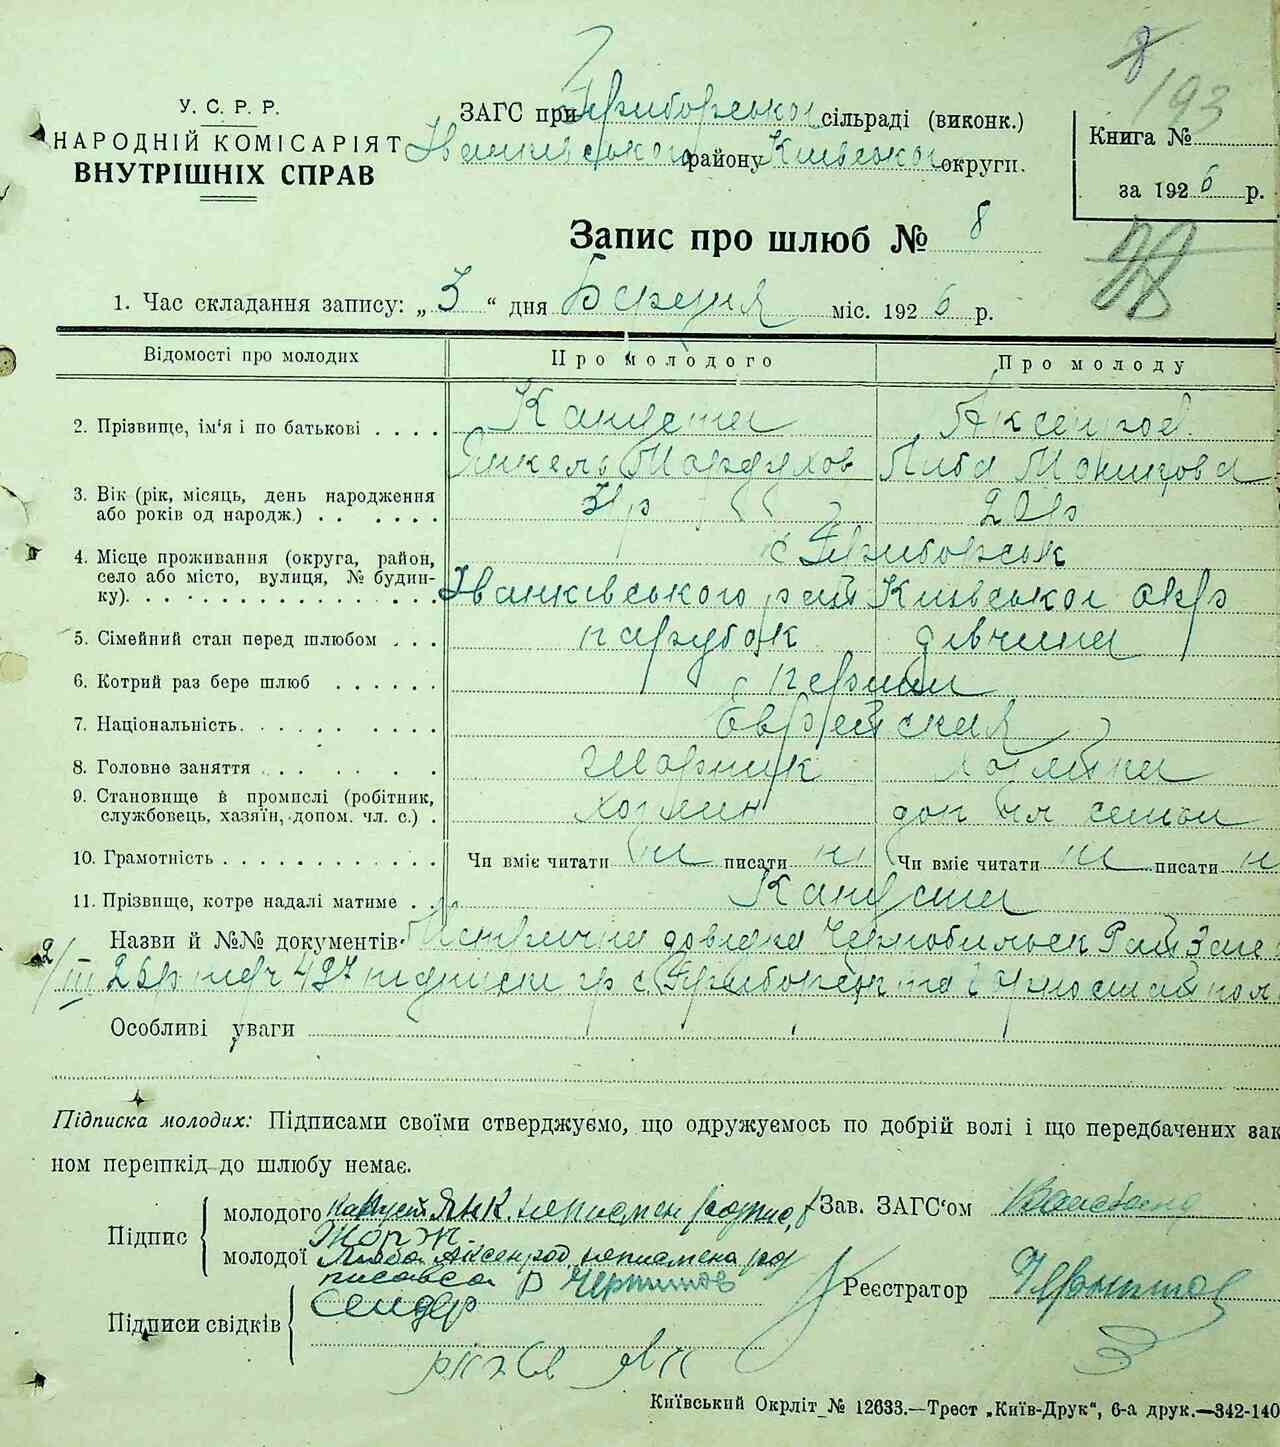 8
193
У. С. Р. Р.
НАРОДНІЙ КОМІСАРІЯТ
ВНУТРІШНІХ СПРАВ
ЗАГС при Приборської сільраді (виконк.)
Іванківського району Київської округи.
Книга №
за 1926 р.
Запис про шлюб № 8
1. Час складання запису: „3“ дня Березня міс. 1926 р.
Відомості про молодих
Про молодого
Про молоду
2. Прізвище, ім‘я і по батькові
Капуста
Аксенрод
Янкель Мордухов
Люба Моишова
3. Вік (рік, місяць, день народження
або років од народж.)
20р
4. Місце проживання (округа, район,
село або місто, вулиця, № будин-
ку)
с Приборськ
Іванківського рай Київської окр
5. Сімейний стан перед шлюбом
парубок
дівчина
6. Котрий раз бере шлюб
первий
7. Національність
Еврейская
8. Головне заняття
шорник
хозяйка
9. Становище в промислі (робітник,
службовець, хазяїн, допом. чл. с.)
хозяин
доп чл семьи
10. Грамотність
Чи вміє читати ні писати ні
Чи вміє читати ні писати
11. Прізвище, котре надалі матиме
Капуста
Назви й №№ документів Метрична довідка Чернобильск Рай Заг
2/III 26р под ч 427 підписки гр с Приборськ та Горностайпол
Особливі уваги
Підписка молодих: Підписами своїми стверджуємо, що одружуємось по добрій волі і що передбачених зак
ном перешкід до шлюбу немає.
Підпис
молодого Капуст Янк. неписмен росписався
молодої Люба Аксенрод неписмена рос
писався
Зав. ЗАГС‘ом
Реєстратор
Підписи свідків
Київський Окрліт № 12633.—Трест „Київ-Друк“, 6-а друк.—342-140